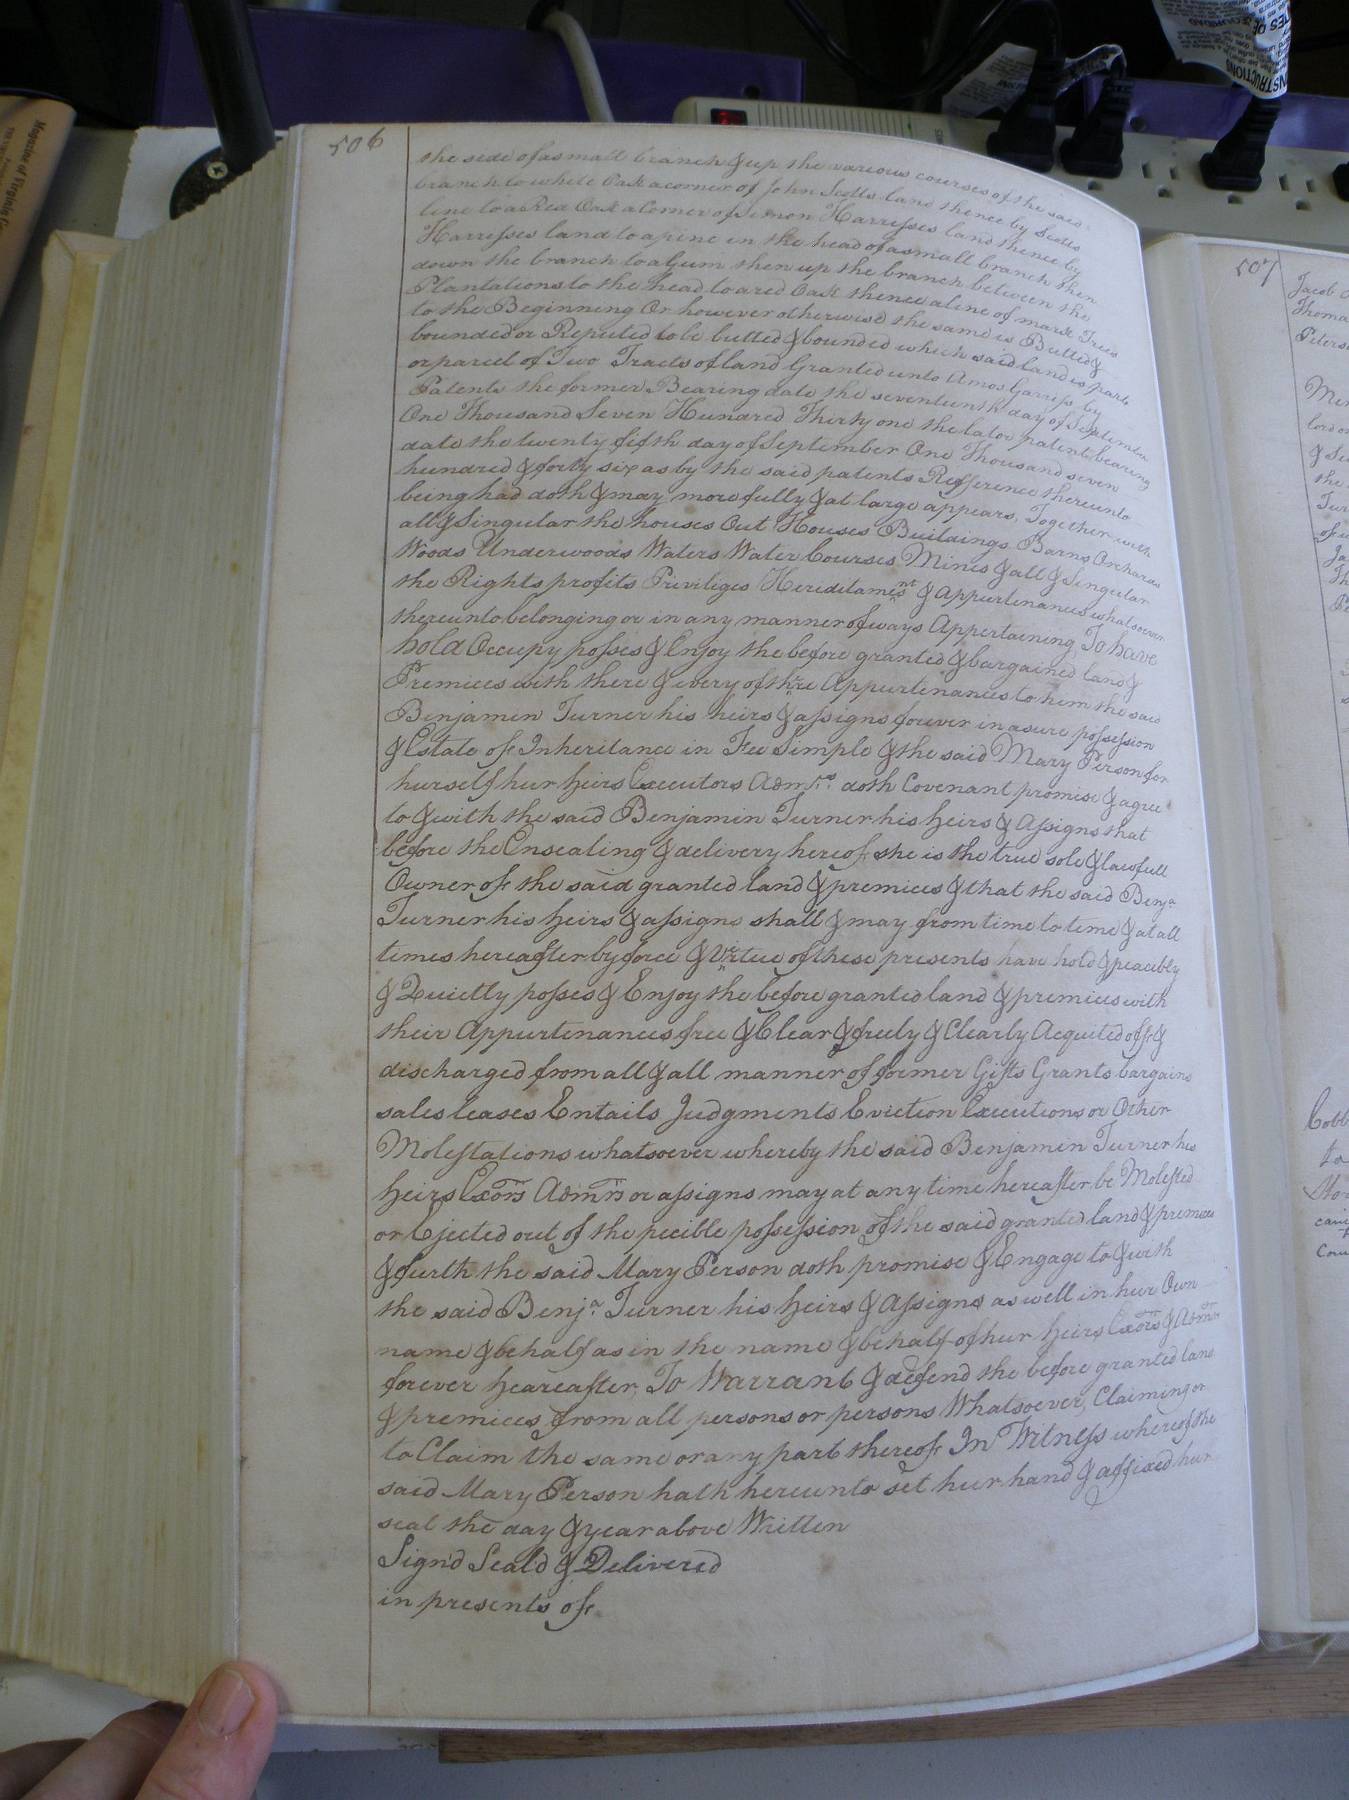 506
the side of a small branch & up the various courses of the said
branch to white Oak a corner of John Scotts land thence by Scotts
line to a Red Oak a Corner of Simon Harresses land thence by
Harresses land to a pine in the head of a small branch then
down the branch to a Gum then up the branch between the
Plantations to the head to a red Oak thence a line of markt Trees
to the Beginning Or however otherwise the same is Butted &
bounded or Reputed to be butted & bounded which said land is part
or parcel of Two Tracts of land Granted unto Amos Garress by
Patents the former Bearing date the seventeenth day of September
One Thousand Seven Hundred Thirty one the later patent bearing
date the twenty fifth day of September One Thousand seven
hundred & forty six as by the said patents Refference thereunto
being had doth & may more fully & at large appears, Together with
all & Singular the houses Out Houses Buildings Barns Orchards
Woods Underwoods Waters Water Courses Mines & all & Singular
the Rights profits Priviliges Hereditaments & Appurtenances whatsoever
thereunto belonging or in any manner of ways Appertaining, To have
hold Occupy posses & Enjoy the before granted & bargained land &
Premices with there & every of there Appurtenances to him the said
Benjamin Turner his heirs & assigns forever in a sure possession
& Estate of Inheritance in Fee Simple & the said Mary Person for
hurself hur heirs Executors Admrs. doth Covenant promise & agree
to & with the said Benjamin Turner his heirs & Assigns that
before the Ensealing & delivery hereof she is the true sole & lawfull
Owner of the said granted land & premices & that the said Benja
Turner his heirs & assigns shall & may from time to time & at all
times hereafter by force & Virtue of these presents have hold & peacibly
& Quietly posses & Enjoy the before granted land & premices with
their Appurtenances free & Clear & freely & Clearly Acquited off &
discharged from all & all manner of former Gifts Grants bargains
sales leases Entails Judgments Eviction Executions or Other
Molestations whatsoever whereby the said Benjamin Turner his
heirs Exors Admrs or assigns may at any time hereafter be Molested
or Ejected out of the pecible possession of the said granted land & premices
& furth the said Mary Person doth promise & Engage to & with
the said Benja. Turner his heirs & Assigns as well in hur Own
name & behalf as in the name & behalf of hur heirs Exors & Admrs
forever heareafter, To Warrant & defend the before granted land
& premices from all persons or persons Whatsoever, Claiming or
to Claim the same or any part thereof In Witness whereof the
said Mary Person hath hereunto set hur hand & affixed hur
seal the day & year above Written
Sign'd Seal'd & Delivered
in presents of
507
Jacob
Thoma
Peters
Magazine of Virginia
INSTRUCTIONS